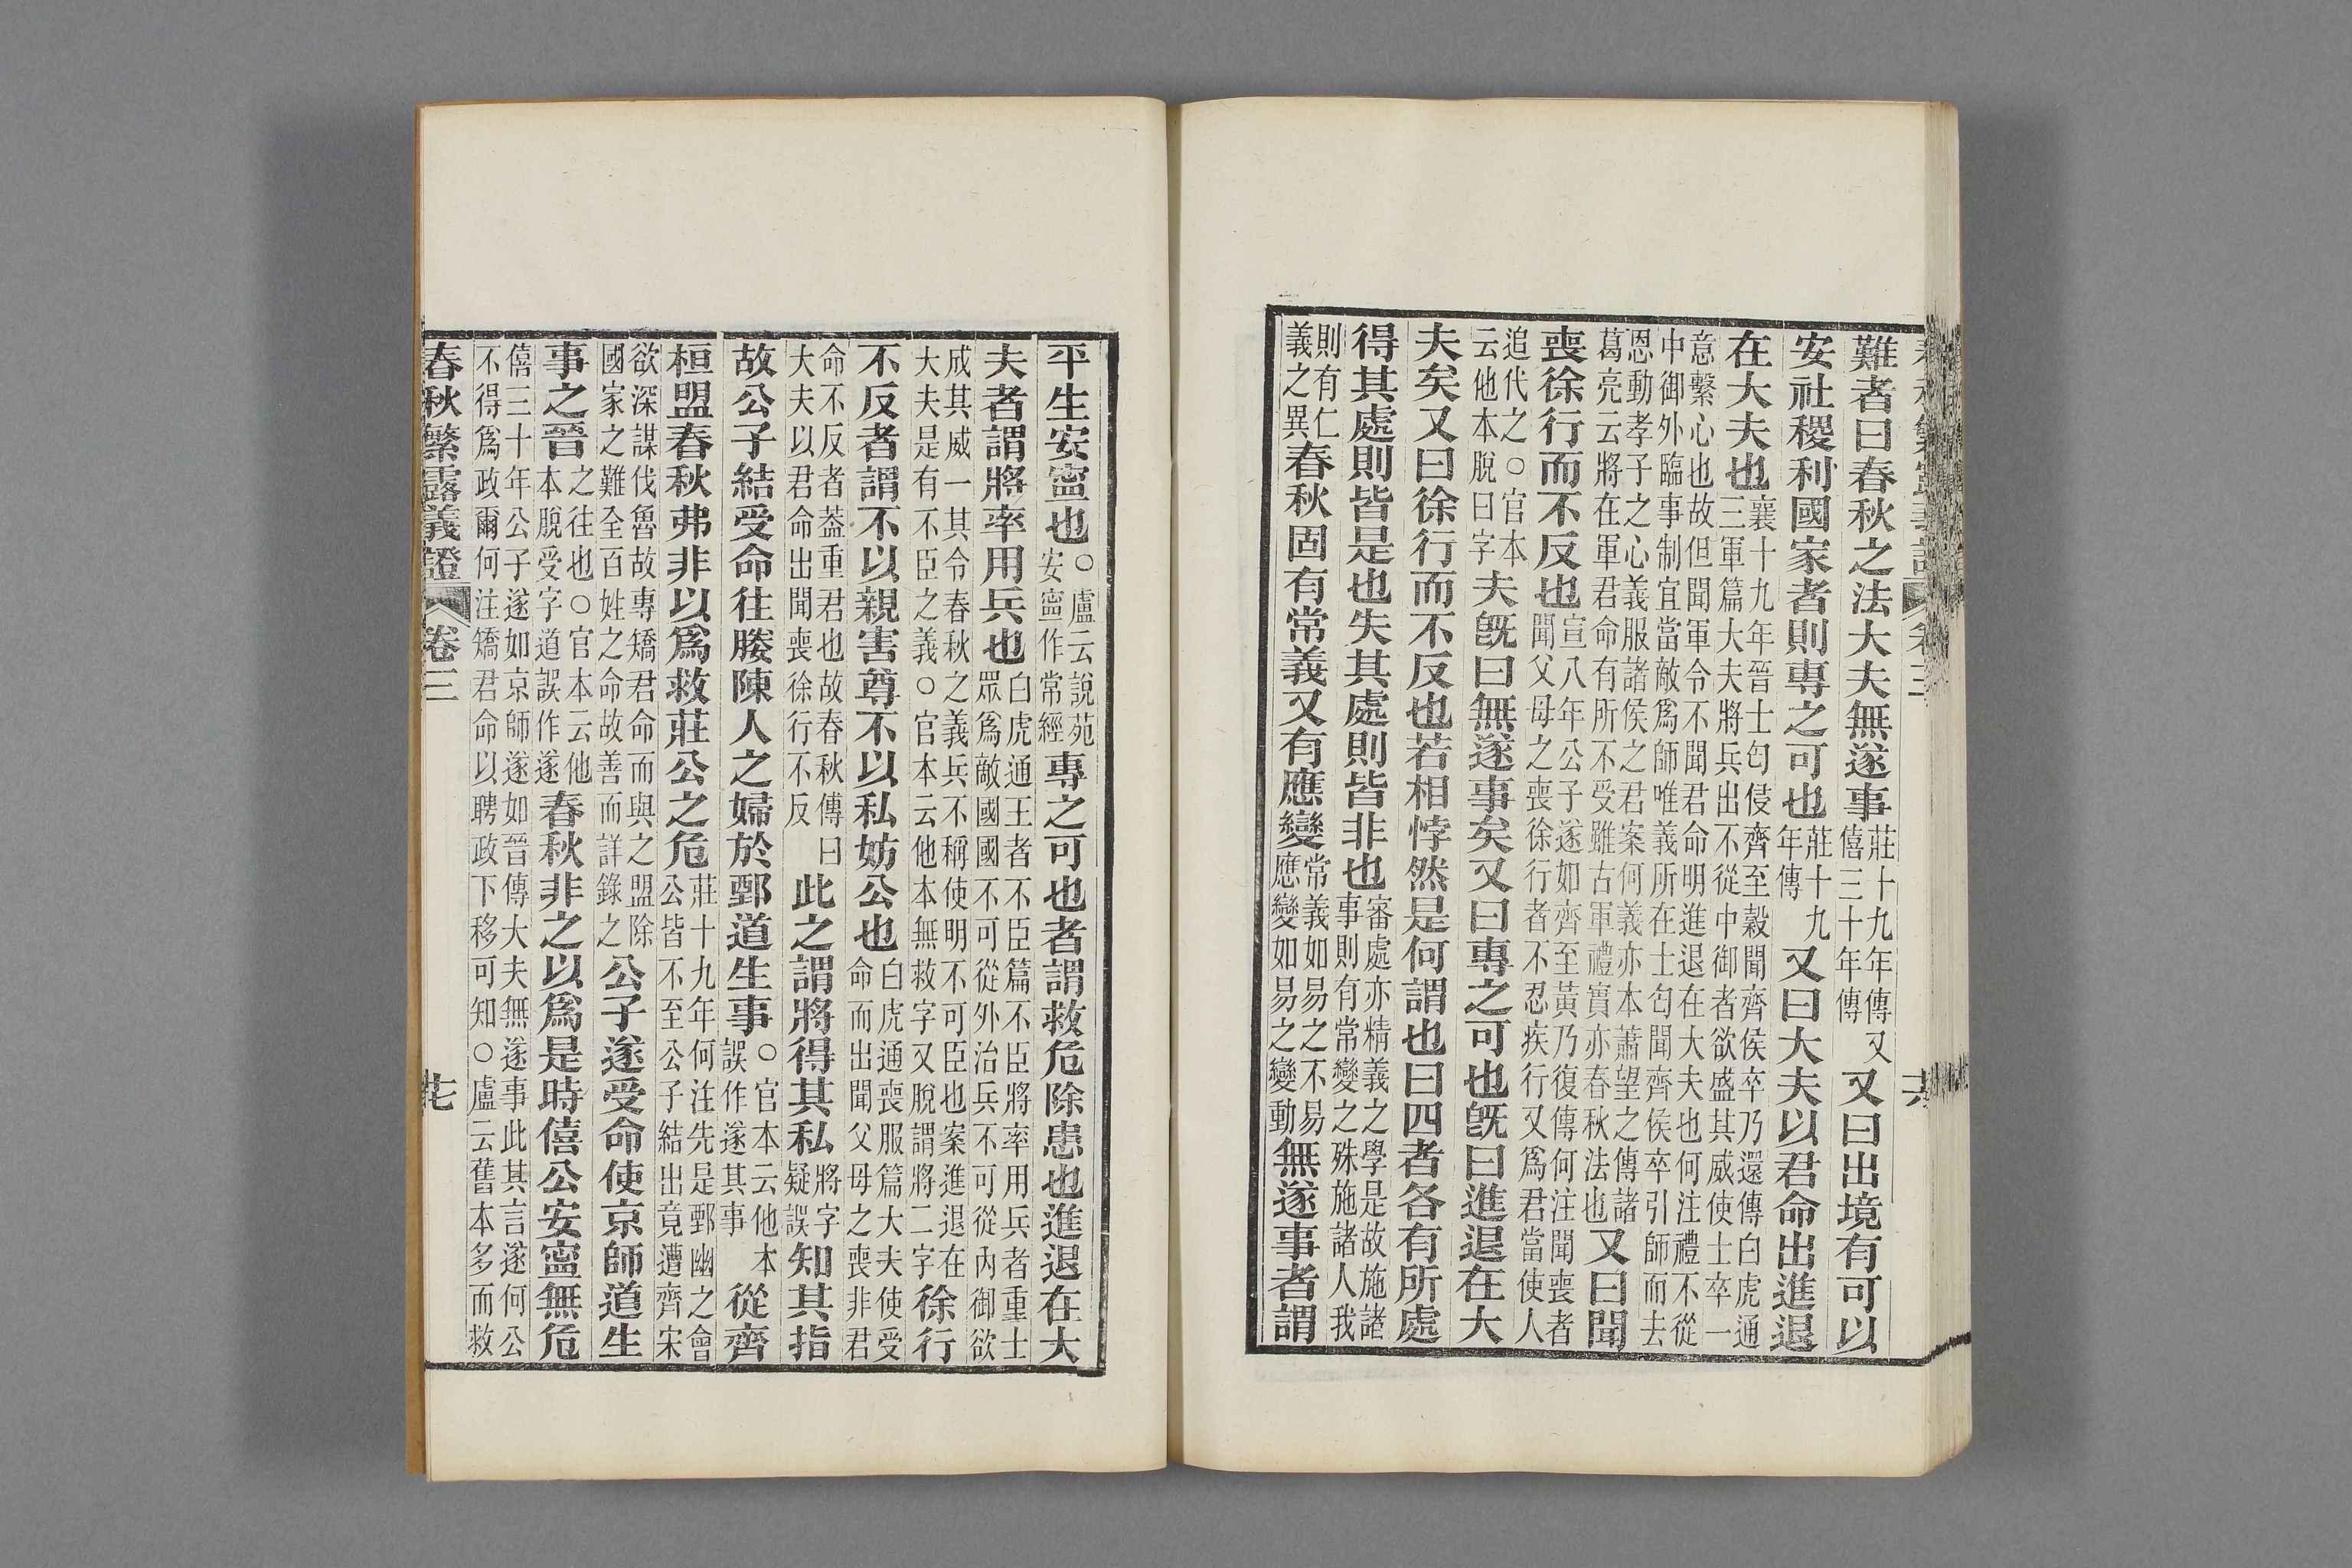 難者曰春秋之法大夫無遂事
莊十九年傳又
僖三十年傳
又曰出境有可以
安社稷利國家者則專之可也
莊十九
年傳
又曰大夫以君命出進退
在大夫也
襄十九年晉士匄侵齊至穀聞齊侯卒乃還傳白虎通
三軍篇大夫將兵出不從中御者欲盛其威使士卒一
意繫心也故但聞軍令不聞君命明進退在大夫也何注禮不從
中御外臨事制宜當敵爲師唯義所在士匄聞齊侯卒引師而去
恩動孝子之心義服諸侯之君案何義亦本蕭望之傳諸
葛亮云將在軍君命有所不受雖古軍禮實亦春秋法也
又曰聞
喪徐行而不反也
宣八年公子遂如齊至黃乃復傳何注聞喪者
聞父母之喪徐行者不忍疾行又爲君當使人
追代之○官本
云他本脫曰字
夫旣曰無遂事矣又曰專之可也旣曰進退在大
夫矣又曰徐行而不反也若相悖然是何謂也曰四者各有所處
得其處則皆是也失其處則皆非也
審處亦精義之學是故施諸
事則有常變之殊施諸人我
則有仁
義之異
春秋固有常義又有應變
常義如易之不易
應變如易之變動
無遂事者謂
平生安寍也
○盧云說苑
安寍作常經
專之可也者謂救危除患也進退在大
夫者謂將率用兵也
白虎通王者不臣篇不臣將率用兵者重士
眾爲敵國國不可從外治兵不可從內御欲
成其威一其令春秋之義兵不稱使明不可臣也案進退在
大夫是有不臣之義○官本云他本無救字又脫謂將二字
徐行
不反者謂不以親害尊不以私妨公也
白虎通喪服篇大夫使受
命而出聞父母之喪非君
命不反者葢重君也故春秋傳曰
大夫以君命出聞喪徐行不反
此之謂將得其私
將字
疑誤
知其指
故公子結受命往媵陳人之婦於鄄道生事
○官本云他本
誤作遂其事
從齊
桓盟春秋弗非以爲救莊公之危
莊十九年何注先是鄄幽之會
公皆不至公子結出竟遭齊宋
欲深謀伐魯故專矯君命而與之盟除
國家之難全百姓之命故善而詳錄之
公子遂受命使京師道生
事之晉
之往也○官本云他
本脫受字道誤作遂
春秋非之以爲是時僖公安寍無危
僖三十年公子遂如京師遂如晉傳大夫無遂事此其言遂何公
不得爲政爾何注矯君命以聘政下移可知○盧云舊本多而救
春秋繁露義證 卷三 十七